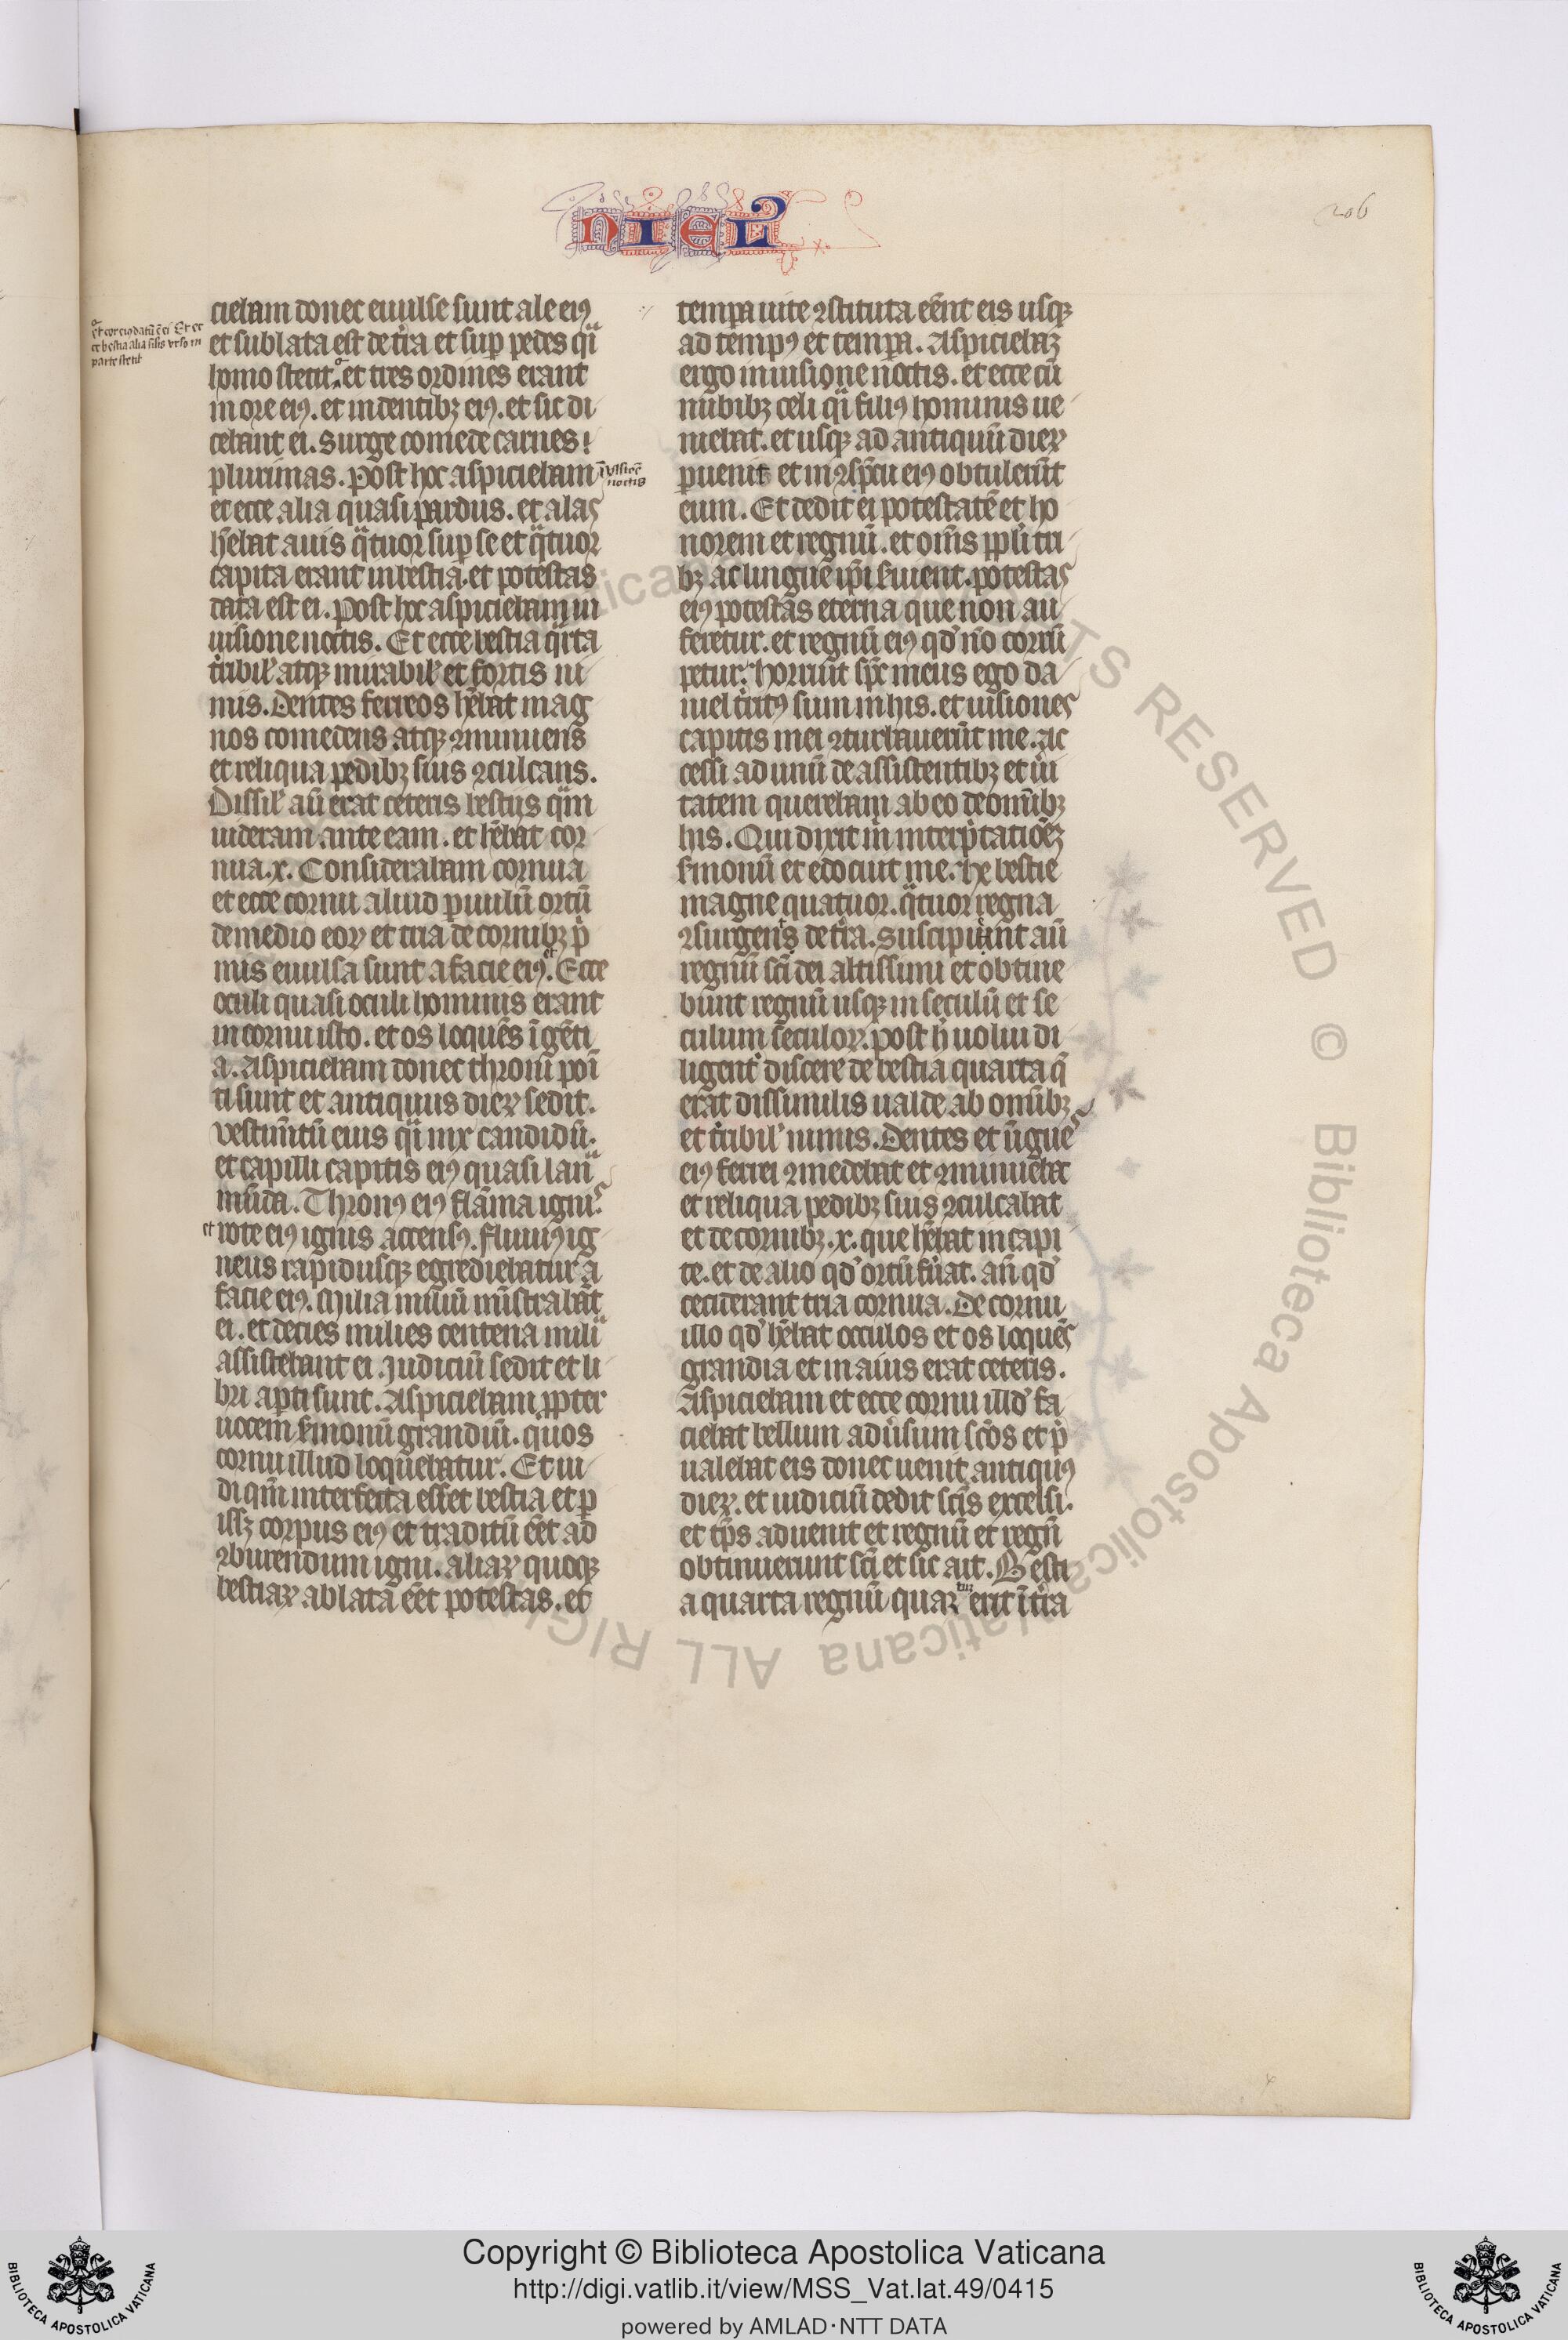 NIEL
206
ciebam donec euulse sunt ale eiꝰ
et sublata est de tͥra et suꝑ pedes qͣi
homo stetit. et tres ordines erant
in ore eiꝰ. et in dentibꝫ eiꝰ. et sic di
cebant ei. Surge comede carnes
plurimas. Post hec aspiciebam
ī uisiōe
noctis
et ecce alia quasi pardus. et alas
hēbat auis qͣtuor suꝑ se et qͣtuor
capita erant in bestia. et potestas
data est ei. Post hec aspiciebam in
uisione noctis. Et ecce bestia qͣrta
tͥribil' atqꝫ mirabil' et fortis ni
mis. Dentes ferreos hēbat mag
nos comedens atqꝫ ꝯminuens
et reliqua pedibꝫ suis ꝯculcans.
Dissil' aū erat ceteris bestiis qͣm
uideram ante eam. et hēbat cor
nua .x. Considerabam cornua
et ecce cornu aliud ꝑuulū ortū
de medio eoꝝ et tria de cornibꝫ pͥ
mis euulsa sunt a facie eiꝰ. et Ecce
oculi quasi oculi hominis erant
in cornu isto. et os loquēs īgēti
a. Aspiciebam donec throni poī
ti sunt et antiquus dieꝝ sedit.
Vestim̄tū eius qͣi nix candidū.
et capilli capitis eiꝰ quasi lanͣ
mūda. Thronꝰ eiꝰ flāma ignis
et rote eiꝰ ignis accensꝰ. Fluuiꝰ ig
neus rapidusqꝫ egrediebatur a
facie eiꝰ. Milia miliū mīstrabāt
ei. et decies milies centena miliͣ
assistebant ei. Judiciū sedit et li
bri aꝑti sunt. Aspiciebam ꝓpter
uocem s̄monū grandiū. quos
cornu illud loquebatur. Et ui
di qm̄ interfecta esset bestia et ꝑ
issꝫ corpus eiꝰ et traditū eēt ad
ꝯburendum igni. aliaꝝ quoqꝫ
bestiaꝝ ablata eēt potestas. et
et cor eiꝰ datū ē ei Et ec
ce bestia alia sīlis urso in
parte stetit
tempora uite ꝯstituta eēnt eis usqꝫ
ad tempꝰ et tempora. Aspiciebaꝫ
ergo in uisione noctis. et ecce cū
nubibꝫ celi qͣi filiꝰ hominis ue
niebat. et usqꝫ ad antiquū dieꝝ
ꝑuenit et in ꝯsp̄cu eiꝰ obtulerūt
eum. Et dedit ei potestatē et ho
norem et regnū. et om̄s ppl'i tri
bꝫ ac lingue ip̄i s̄uient. potestas
eiꝰ potestas eterna que non au
feretur. et regnū eiꝰ qd' nō corrū
petur. horruit sp̄c meus ego da
niel tͥritꝰ sum in his. et uisiones
capitis mei ꝯturbauerūt me. Ac
cessi ad unū de assistentibꝫ et uͥi
tatem querebam ab eo de omībꝫ
his. Qui dixit m̄ interp̄tatiōeꝫ
s̄monū et edocuit me. He bestie
magne quatuor. qͣtuor regna
ꝯsurgent de tͥra. Suscipiūt aū
regnū sc̄i dei altissimi et obtine
bunt regnū usqꝫ in seculū et se
culum seculoꝝ. Post h̄ uolui di
ligent' discere de bestia quarta q̄
erat dissimilis ualde ab omībꝫ
et tͥribil' nimis. Dentes et ūgues
eiꝰ ferrei ꝯmedebat et ꝯminuebat
et reliqua pedibꝫ suis ꝯculcabat
et de cornibꝫ .x. que hēbat in capi
te. et de alio qd' ortū fu͛at. an̄ qd'
ceciderant tria cornua. De cornu
illo qd' hēbat occulos et os loquēs
grandia et maius erat ceteris.
Aspiciebam et ecce cornu illd' fa
ciebat bellum adu͛sum sc̄os et pͥ
ualebat eis donec uenit antiquꝰ
dieꝝ. et iudiciū dedit sc̄is excelsi.
et tp̄s aduenit et regnū et regn̄
obtinuerunt sc̄i et sic ait. Besti
a quarta regnū quartū erit ī tͥra
Copyright © Biblioteca Apostolica Vaticana
http://digi.vatlib.it/view/MSS_Vat.lat.49/0415
powered by AMLAD·NTT DATA
BIBLIOTECA APOSTOLICA VATICANA
BIBLIOTECA APOSTOLICA VATICANA
© Biblioteca Apostolica Vaticana ALL RIGHTS RESERVED